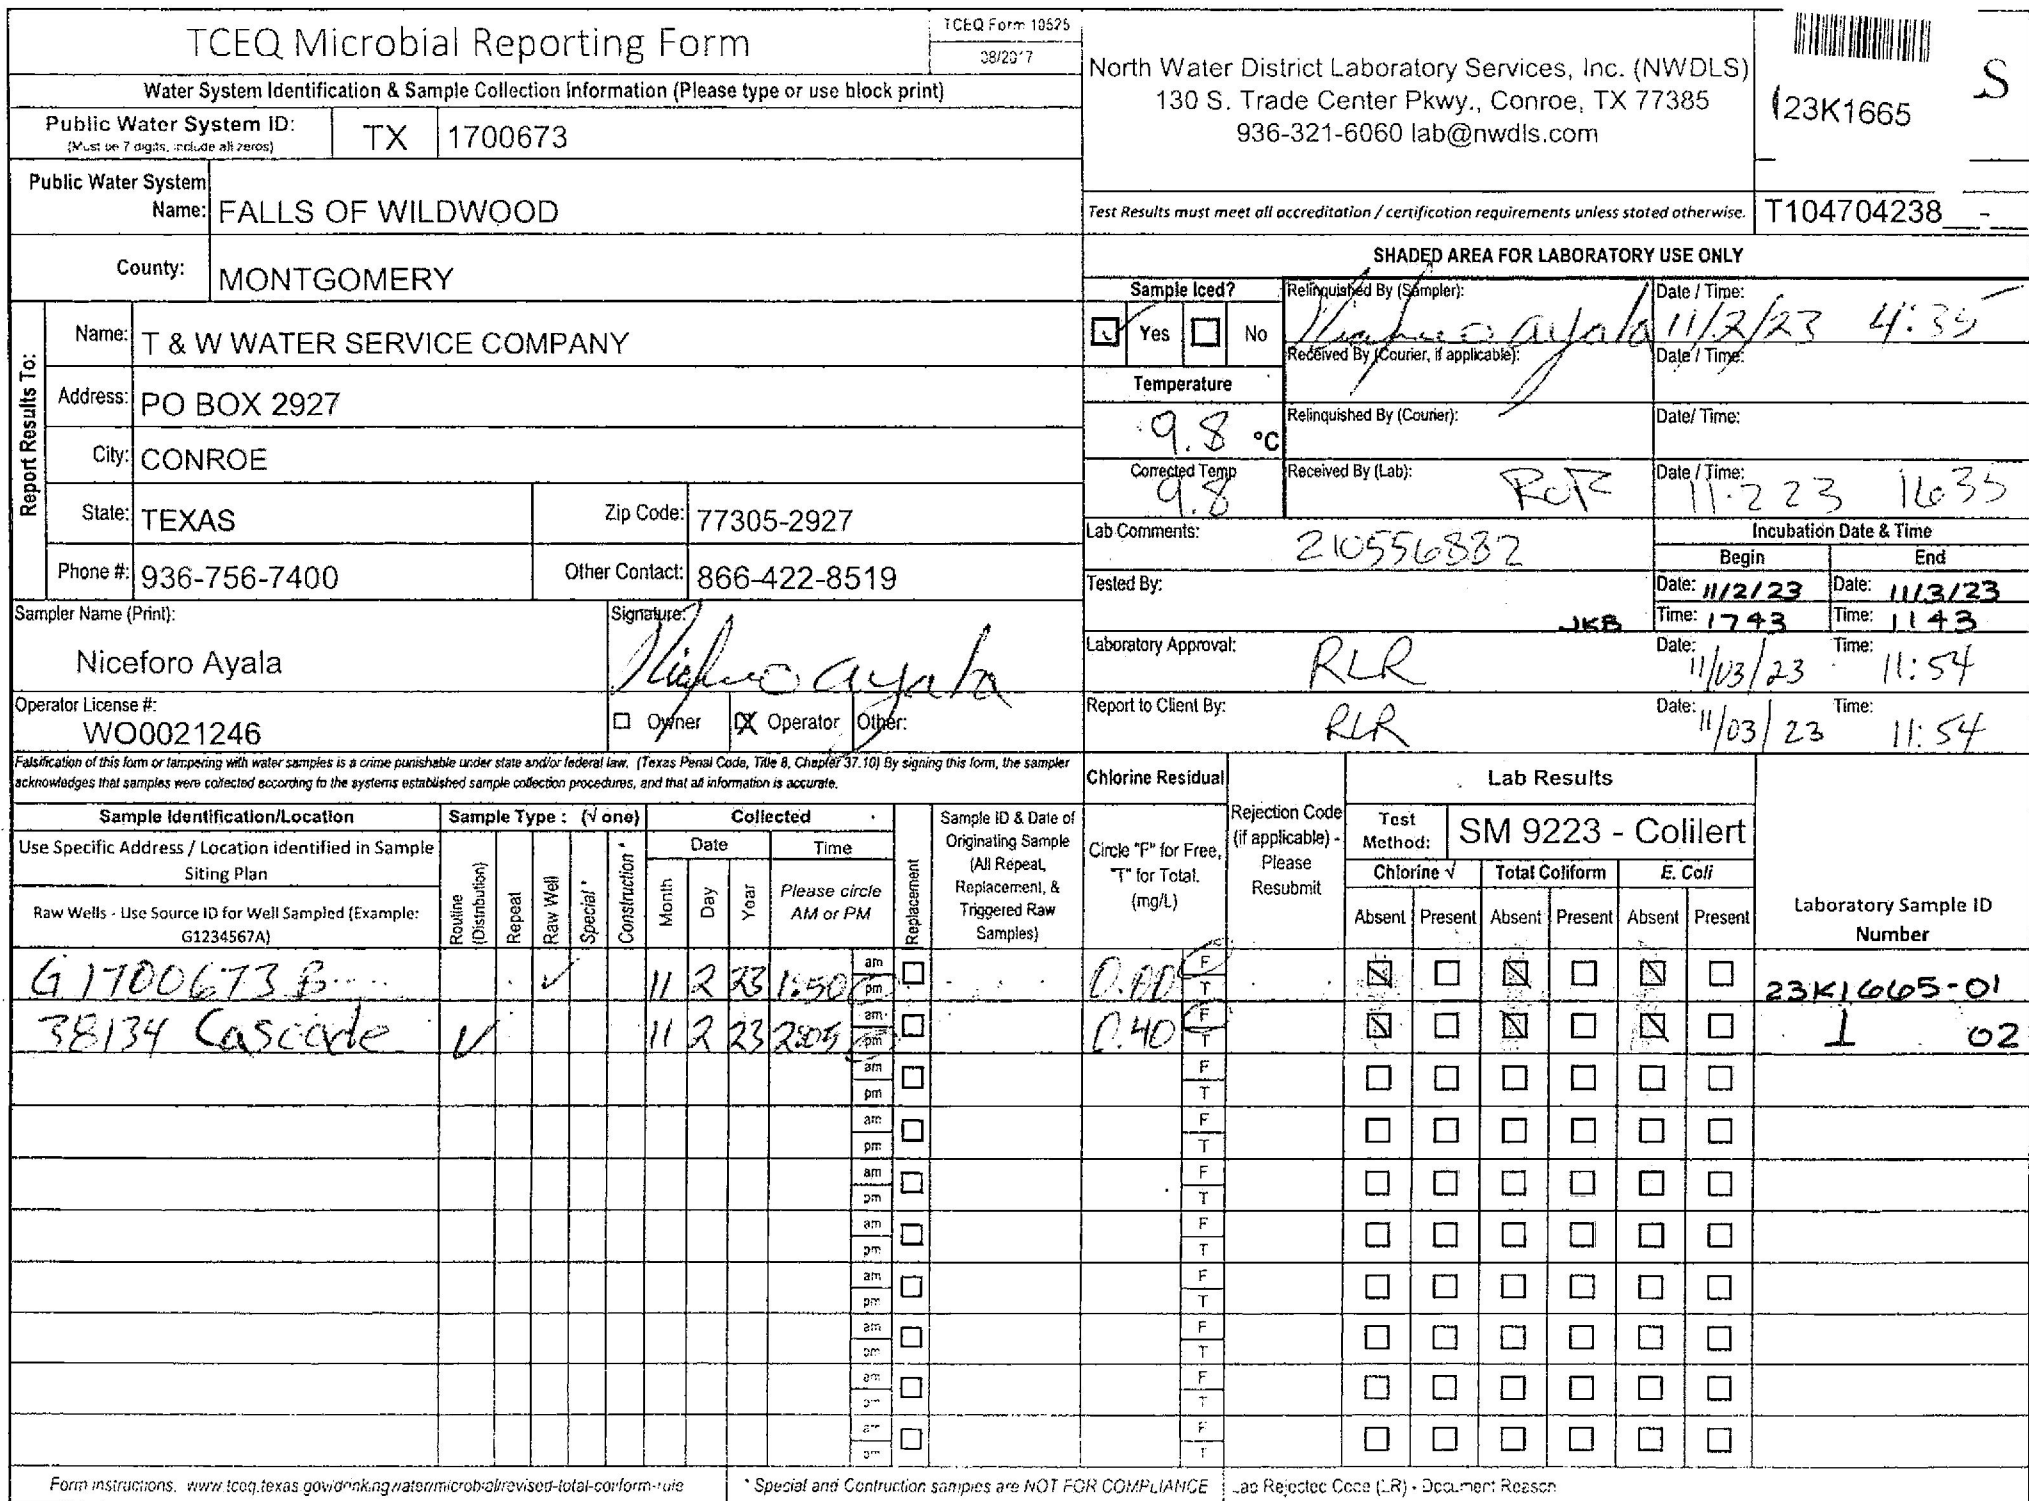 TCEQ Microbial Reporting Form
TCEQ Form 10525
08/2017
Water System Identification & Sample Collection Information (Please type or use block print)
Public Water System ID:
(Must be 7 digits, include all zeros)
TX
1700673
Public Water System
Name:
FALLS OF WILDWOOD
County:
MONTGOMERY
Report Results To:
Name:
T & W WATER SERVICE COMPANY
Address:
PO BOX 2927
City:
CONROE
State:
TEXAS
Zip Code:
77305-2927
Phone #:
936-756-7400
Other Contact:
866-422-8519
Sampler Name (Print):
Niceforo Ayala
Signature:
Operator License #:
WO0021246
Owner
Operator
Other:
Falsification of this form or tampering with water samples is a crime punishable under state and/or federal law. (Texas Penal Code, Title 8, Chapter 37.10) By signing this form, the sampler
acknowledges that samples were collected according to the systems established sample collection procedures, and that all information is accurate.
North Water District Laboratory Services, Inc. (NWDLS)
130 S. Trade Center Pkwy., Conroe, TX 77385
936-321-6060 lab@nwdls.com
23K1665
S
Test Results must meet all accreditation / certification requirements unless stated otherwise.
T104704238
SHADED AREA FOR LABORATORY USE ONLY
Sample Iced?
Yes
No
Relinquished By (Sampler):
Date / Time:
11/2/23 4:35
Received By (Courier, if applicable):
Date / Time:
Temperature
9.8 °C
Relinquished By (Courier):
Date/ Time:
Corrected Temp
9.8
Received By (Lab):
Date / Time:
11-2 23 1635
Lab Comments:
210556882
Incubation Date & Time
Begin
End
Tested By:
JKB
Date: 11/2/23
Date: 11/3/23
Time: 1743
Time: 1143
Laboratory Approval:
RLR
Date: 11/03/23
Time: 11:54
Report to Client By:
RLR
Date: 11/03/23
Time: 11:54
Sample Identification/Location
Use Specific Address / Location identified in Sample
Siting Plan
Raw Wells - Use Source ID for Well Sampled (Example:
G1234567A)
Sample Type : (√ one)
Routine
(Distribution)
Repeat
Raw Well
Special *
Construction *
Collected
Date
Time
Month
Day
Year
Please circle
AM or PM
Replacement
Sample ID & Date of
Originating Sample
(All Repeat,
Replacement, &
Triggered Raw
Samples)
Chlorine Residual
Circle "F" for Free,
"T" for Total.
(mg/L)
Rejection Code
(if applicable) -
Please
Resubmit
Lab Results
Test
Method:
SM 9223 - Colilert
Chlorine √
Total Coliform
E. Coli
Absent
Present
Absent
Present
Absent
Present
Laboratory Sample ID
Number
G1700673B ✓ 11 2 23 1:50 am pm F T 23K1665-01
38134 Cascade ✓ 11 2 23 2:05 am pm 0.40 F T 02
am pm F T
am pm F T
am pm F T
am pm F T
am pm F T
am pm F T
am pm F T
am pm F T
Form instructions. www.tceq.texas.gov/drinkingwater/microbial/revised-total-coliform-rule
* Special and Contruction samples are NOT FOR COMPLIANCE
Lab Rejected Code (LR) - Document Reason